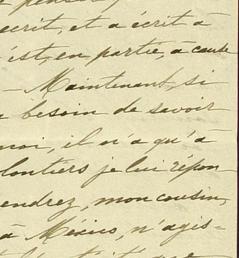 écrit, et a écrit à
'est, en partie, à cause
- Maintenant, si
a besoin de savoir
moi, il n'a qu'à
lontiers je lui répon
endrez, mon cousin,
à México, n'agis-